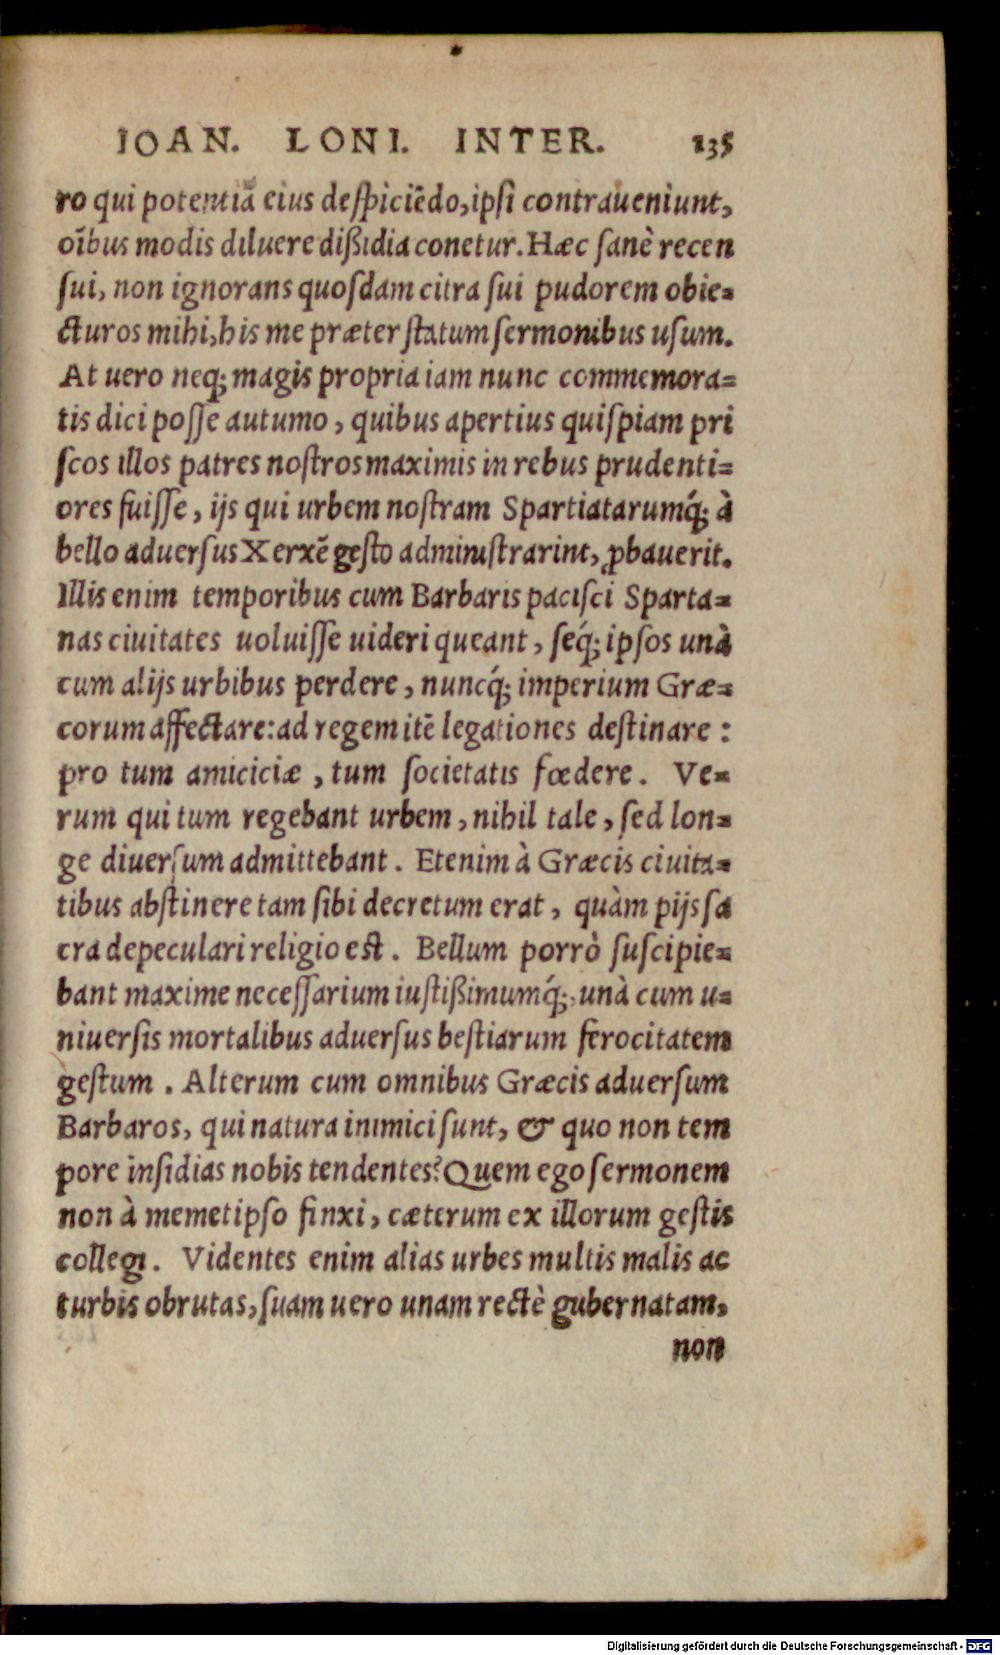 IOAN. LONI. INTER. 135
ro qui potentiã eius deſpiciẽdo, ipſi contraueniunt,
oĩbus modis diluere dißidia conetur. Hæc ſanè recen
ſui, non ignorans quoſdam citra ſui pudorem obie⸗
cturos mihi, his me præter ſtatum ſermonibus uſum.
At uero neq; magis propria iam nunc commemora⸗
tis dici poſſe autumo, quibus apertius quiſpiam pri
ſcos illos patres noſtros maximis in rebus prudenti⸗
ores fuiſſe, ijs qui urbem noſtram Spartiatarumq́; à
bello aduerſus Xerxẽ geſto adminiſtrarint, ꝓbauerit.
Illis enim temporibus cum Barbaris paciſci Sparta⸗
nas ciuitates uoluiſſe uideri queant, ſeq́; ipſos unà
cum alijs urbibus perdere, nuncq́; imperium Græ⸗
corum affectare: ad regem itẽ legationes deſtinare:
pro tum amiciciæ, tum ſocietatis fœdere. Ve⸗
rum qui tum regebant urbem, nihil tale, ſed lon⸗
ge diuerſum admittebant. Etenim à Græcis ciuita⸗
tibus abſtinere tam ſibi decretum erat, quàm pijs ſa
cra depeculari religio est. Bellum porrò ſuſcipie⸗
bant maxime neceſſarium iuſtißimumq́;, unà cum u⸗
niuerſis mortalibus aduerſus beſtiarum ferocitatem
geſtum. Alterum cum omnibus Græcis aduerſum
Barbaros, qui natura inimici ſunt, & quo non tem
pore inſidias nobis tendentes? Quem ego ſermonem
non à memetipſo finxi, cæterum ex illorum geſtis
collegi. Videntes enim alias urbes multis malis ac
turbis obrutas, ſuam uero unam rectè gubernatam,
non
Digitalisierung gefördert durch die Deutsche Forschungsgemeinschaft - DFG